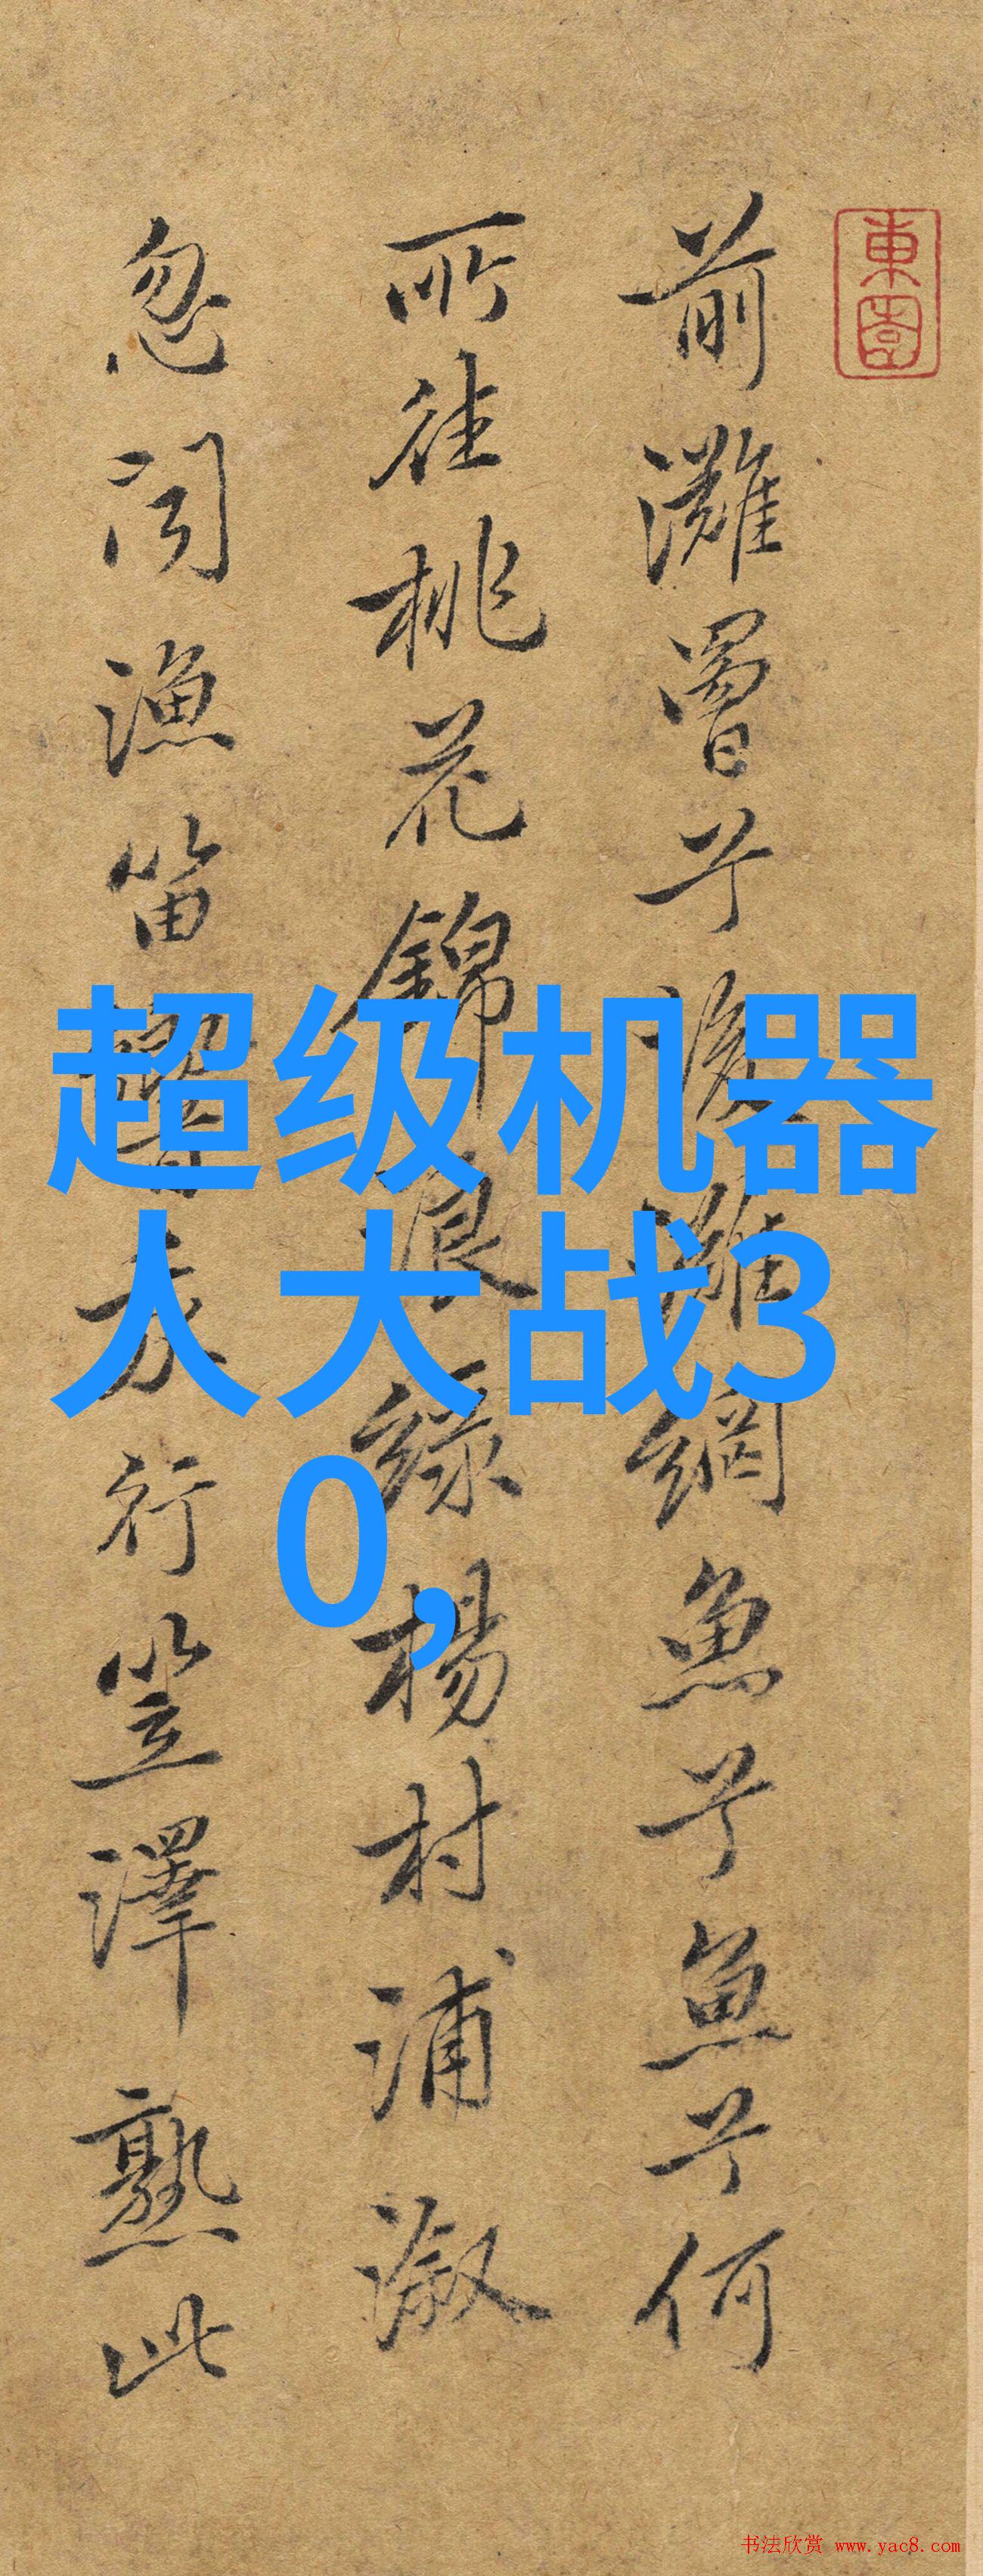 東園
前灘罾兮後灘網魚兮魚兮何
所往桃花錦浪綠楊村浦溆
忽聞漁笛響我行笠澤熟此
超级机器
人大战3
0,
书法欣赏 www.yac8.com